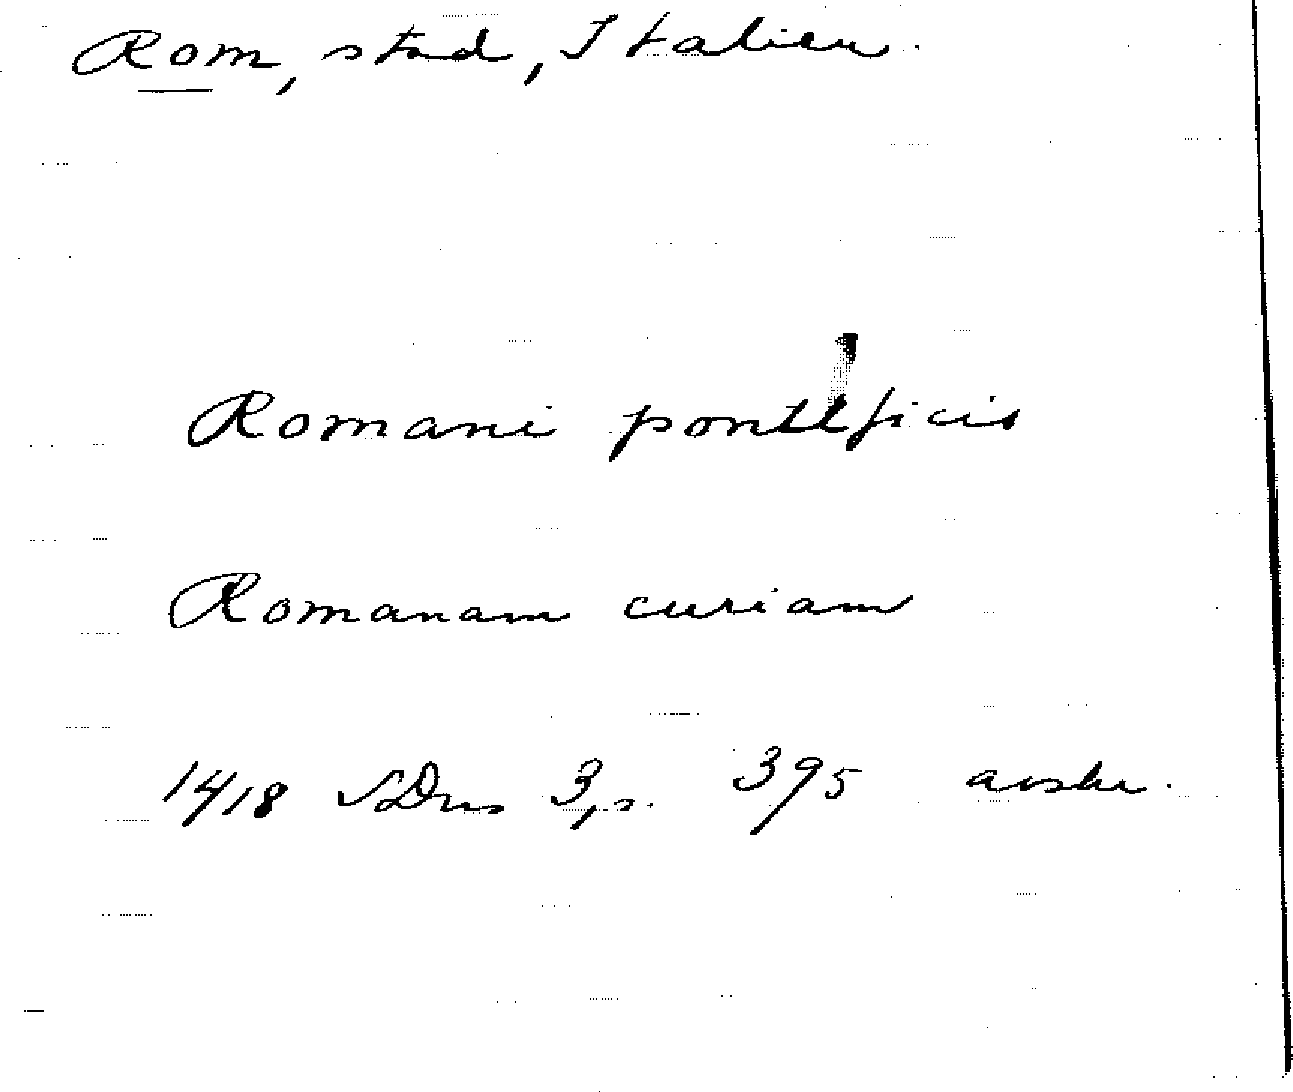 Rom, stad, Italien.
Romani pontificis
Romanam curiam
1418 SDns 3, s. 395 avskr.